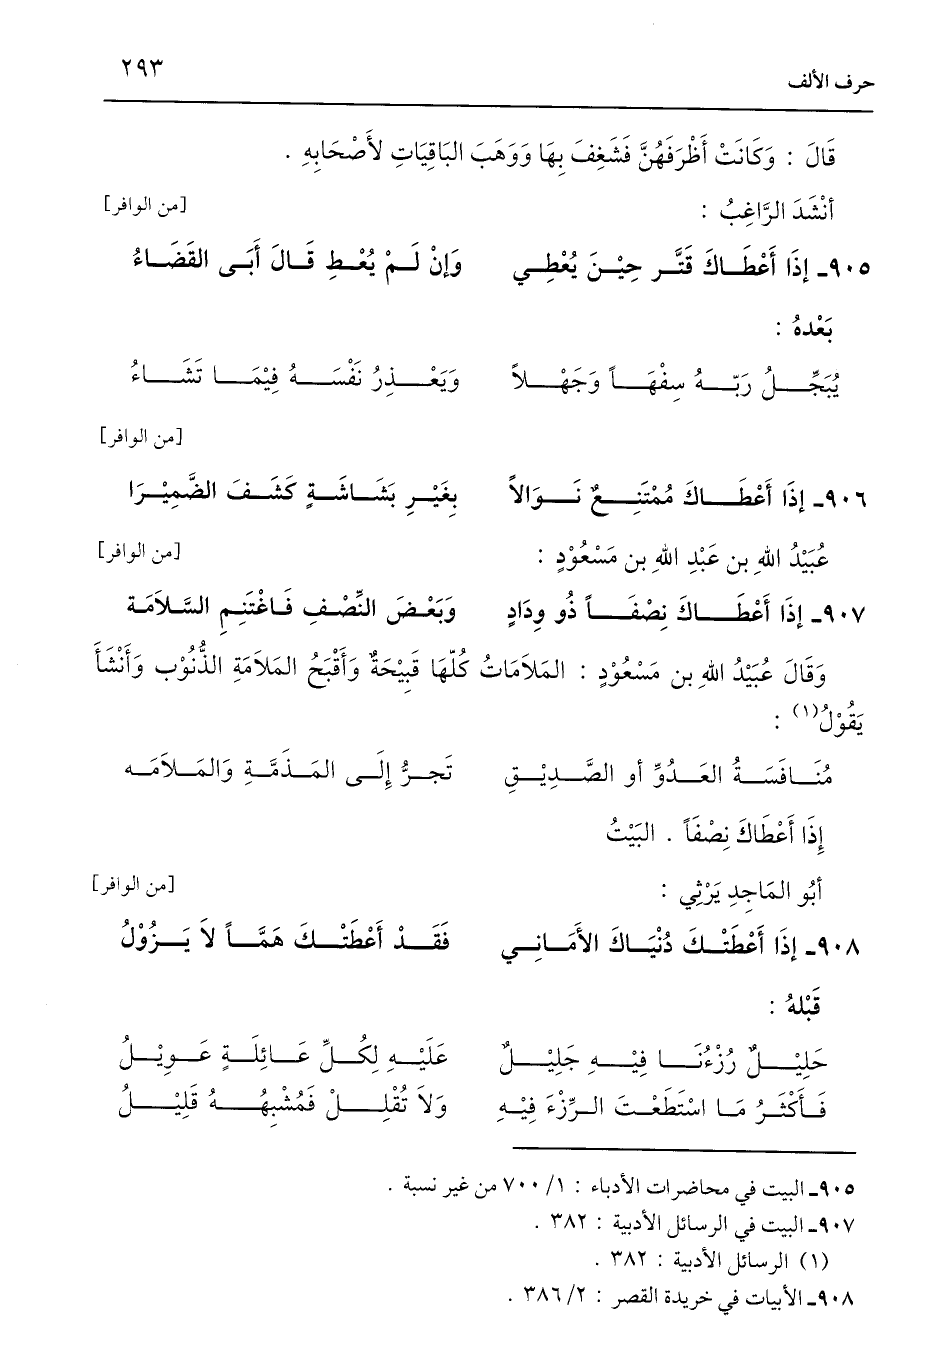 حرف الألف ٢٩٣
قَالَ : وَكَانَتْ أَظْرَفَهُنَّ فَشَغِفَ بِهَا وَوَهَبَ البَاقِيَاتِ لأَصْحَابِهِ .
أَنْشَدَ الرَّاغِبُ : [من الوافر]
٩٠٥ـ إِذَا أَعْطَاكَ قَتَّر حِيْنَ يُعْطِي وَإِنْ لَمْ يُعْطِ قَالَ أَبَى القَضَاءُ
بَعْدهُ :
يُبَجِّلُ رَبّهُ سِفْهَاً وَجَهْلاً وَيَعْذِرُ نَفْسَهُ فِيْمَا تَشَاءُ
[من الوافر]
٩٠٦ـ إِذَا أَعْطَاكَ مُمْتَنِعٌ نَوَالاً بِغَيْرِ بَشَاشَةٍ كَشَفَ الضَّمِيْرَا
عُبَيْدُ اللهِ بن عَبْدِ اللهِ بن مَسْعُوْدٍ : [من الوافر]
٩٠٧ـ إِذَا أَعْطَاكَ نِصْفَاً ذُو وِدَادٍ وَبَعْضَ النِّصْفِ فَاغْتَنِمِ السَّلاَمَة
وَقَالَ عُبَيْدُ اللهِ بن مَسْعُوْدٍ : المَلاَمَاتُ كُلّهَا قَبِيْحَةٌ وَأَقْبَحُ المَلاَمَةِ الذُّنُوْب وَأَنْشَأَ
يَقُوْلُ(١) :
مُنَافَسَةُ العَدُوِّ أو الصَّدِيْقِ تَجرُّ إِلَى المَذَمَّةِ وَالمَلاَمَه
إِذَا أَعْطَاكَ نِصْفَاً . البَيْتُ
أَبُو المَاجِدِ يَرْثِي : [من الوافر]
٩٠٨ـ إِذَا أَعْطَتْكَ دُنْيَاكَ الأَمَانِي فَقَدْ أَعْطَتْكَ هَمَّاً لاَ يَزُوْلُ
قَبْلهُ :
خَلِيْلٌ رُزْءُنَا فِيْهِ جَلِيْلٌ عَلَيْهِ لِكُلِّ عَائِلَةٍ عَوِيْلُ
فَأَكْثَرُ مَا اسْتَطَعْتَ الرِّزْءَ فِيْهِ وَلاَ تُقْلِلْ فَمُشْبِهُهُ قَلِيْلُ
٩٠٥ـ البيت في محاضرات الأدباء : ١/ ٧٠٠ من غير نسبة .
٩٠٧ـ البيت في الرسائل الأدبية : ٣٨٢ .
(١) الرسائل الأدبية : ٣٨٢ .
٩٠٨ـ الأبيات في خريدة القصر : ٢/ ٣٨٦ .